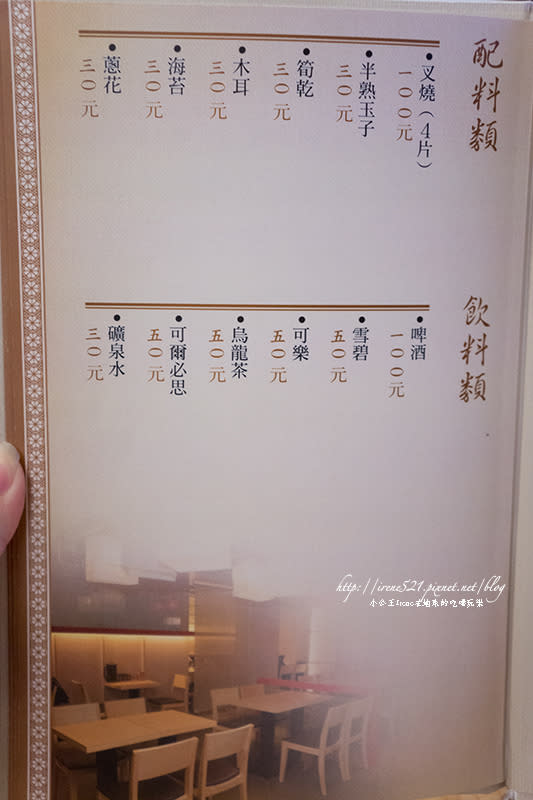 配料類
•叉燒（4片）
一〇〇元
•半熟玉子
三〇元
•筍乾
三〇元
•木耳
三〇元
•海苔
三〇元
•蔥花
三〇元
飲料類
•啤酒
一〇〇元
•雪碧
五〇元
•可樂
五〇元
•烏龍茶
五〇元
•可爾必思
五〇元
•礦泉水
三〇元
http://irene521.pixnet.net/blog